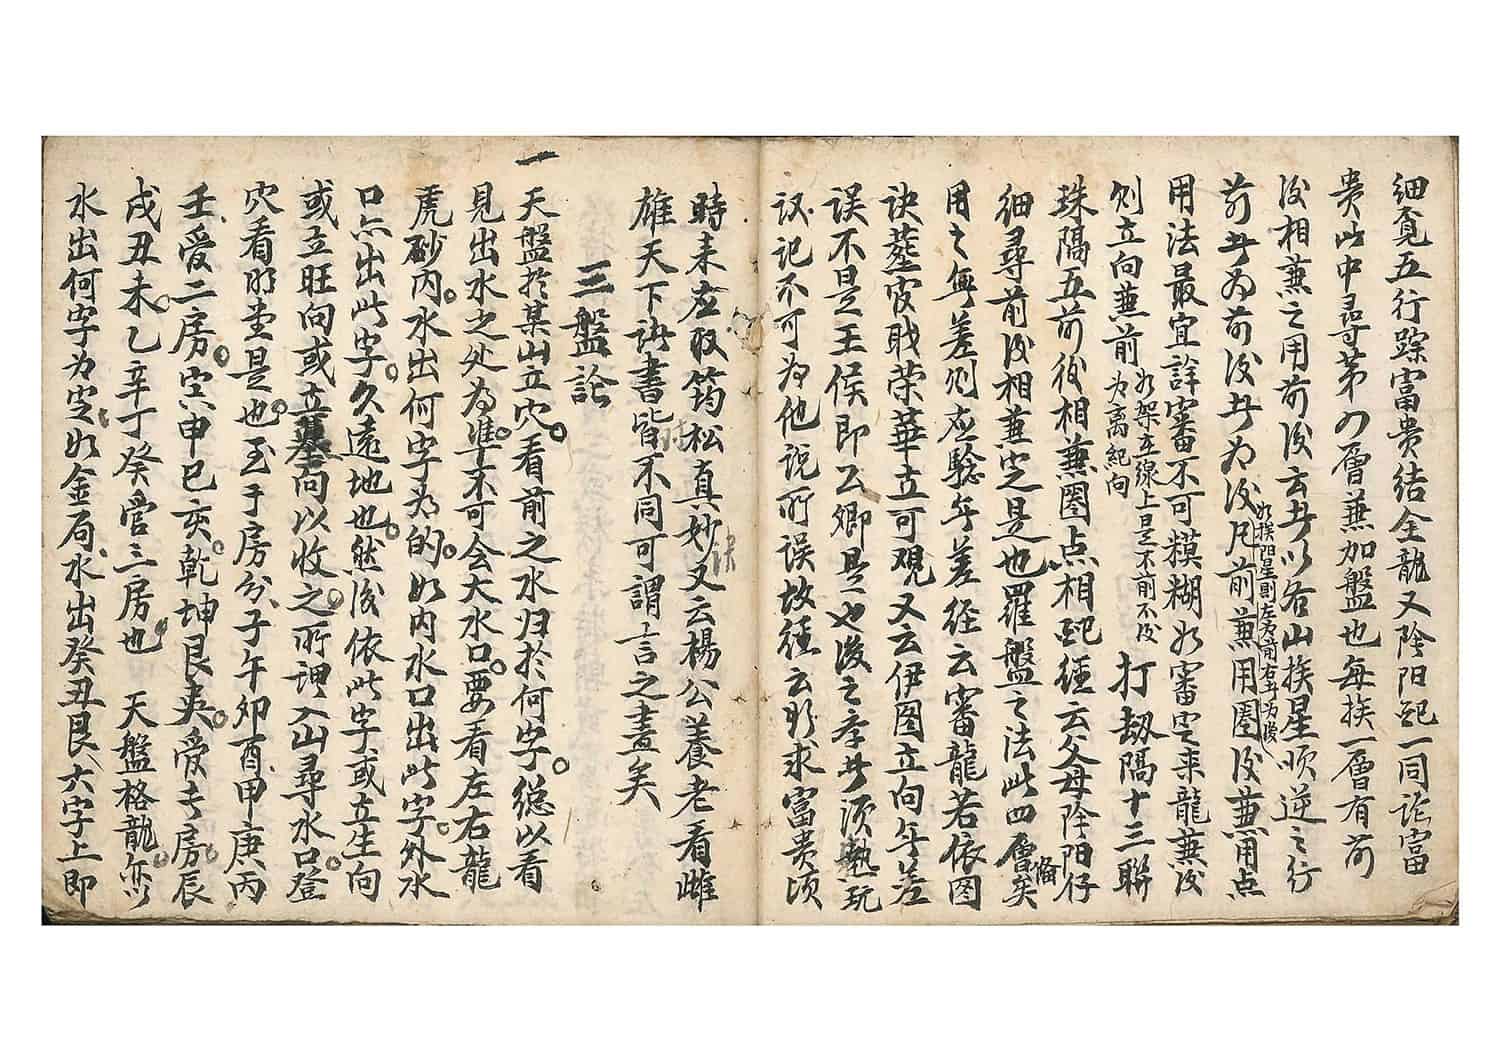 細覓五行踪富貴結全龍又陰阳配一同論富
贵此中尋第四層兼加盤也每挨一層有前
后相兼之用前后云者以各山挨星顺逆之行
前者为前後者为後凡前兼用圈后兼用点
如挨阳星则左为前右者为後
用法最宜詳審不可糢糊如審定来龍兼後
则立向兼前
如架立線上是不前不後
为离紀向
打劫隔十三聯
珠隔五前後相兼圈点相配經云父母陰阳仔
細尋前後相兼定是也羅盤之法此四層矣
用之無差则应驗無差经云審龍若依图
訣葬官職荣華立可觀又云伊图立向無差
误不是王侯即公卿是也後之学者须熟玩
议记不可为他説所误故经云欲求富贵顷
時来应取筠松真妙又云楊公養老看雌
訣
雄天下诀書皆不同可謂言之盡矣
三盤論
一
天盤於某山立穴看前之水归於何字總以看
見出水之处為準不可会大水口要看左右龍
虎砂内水出何字为的如内水口出此字外水
口亦出此字久遠地也然後依此字或立生向
或立旺向或立墓向以收之所谓入山尋水口登
穴看明堂是也至于房分子午卯酉甲庚丙
壬受二房寅申巳亥乾坤艮巽受长房辰
戌丑未乙辛丁癸管三房也 天盤格龍亦以
水出何字为定如金局水出癸丑艮六字上即